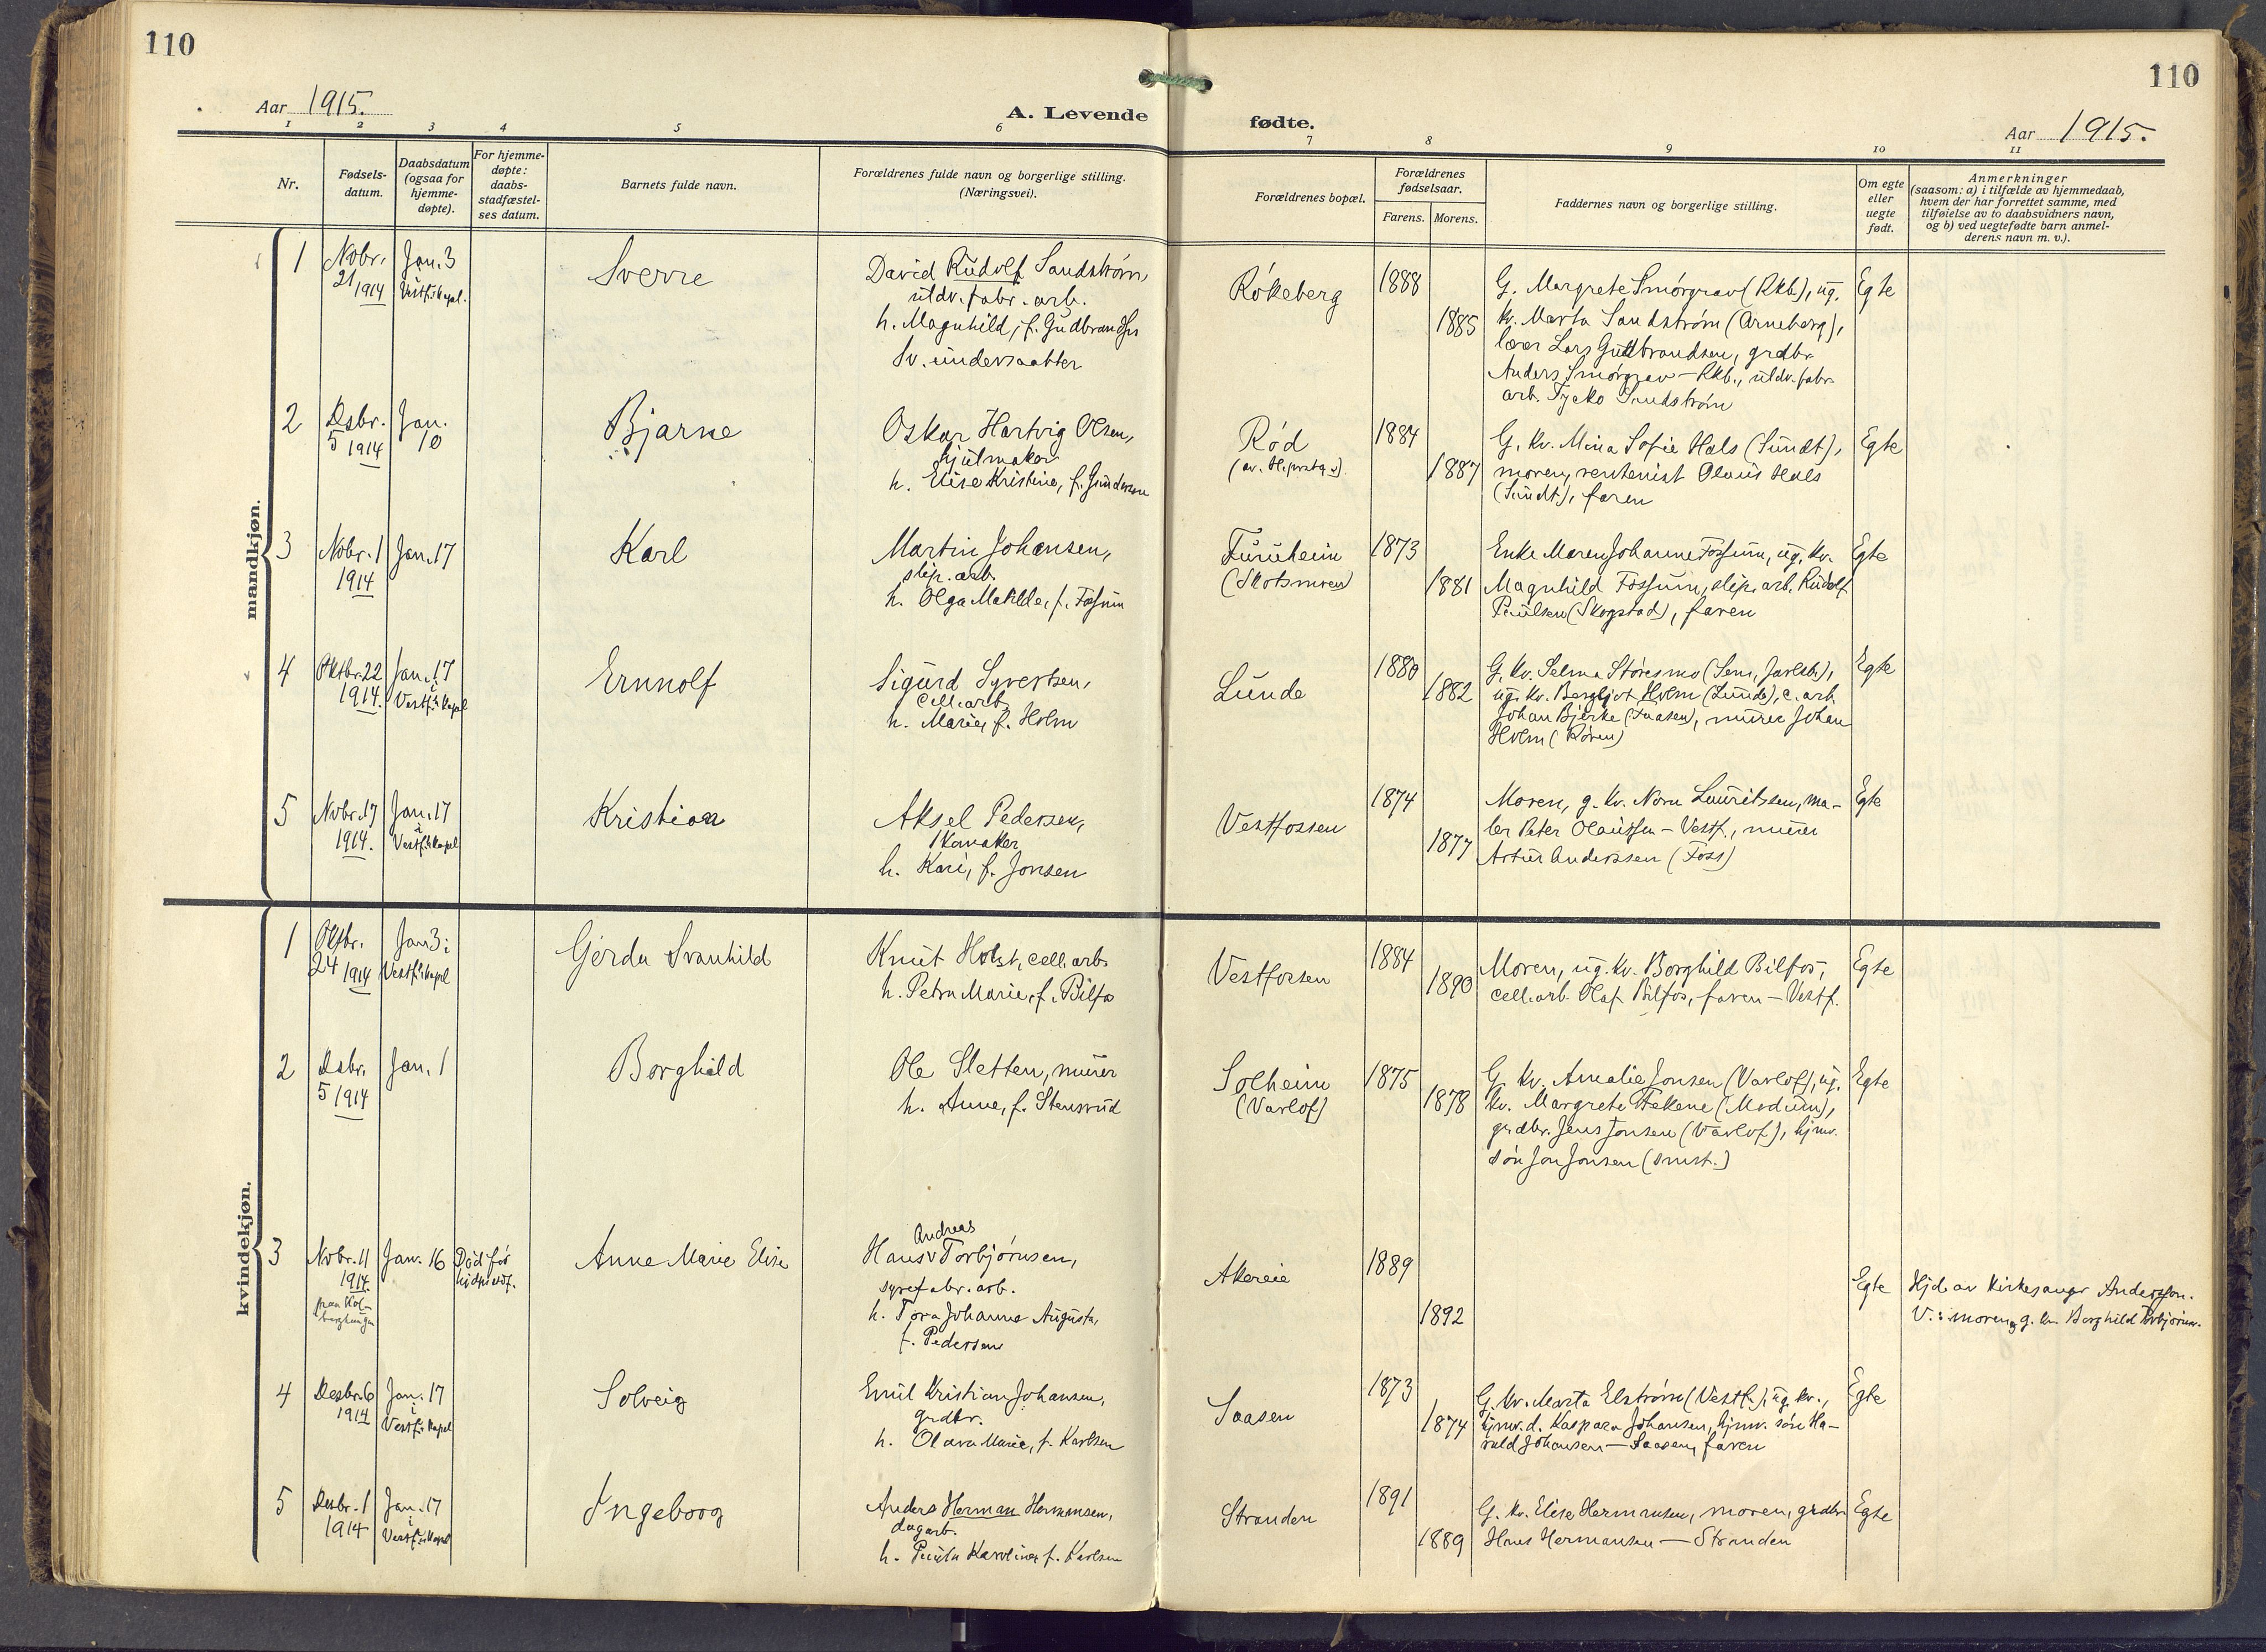 110
110
Aar 1915.
A. Levende
fødte.
Aar 1915.
1 2 3 4 5 6 7 8 9 10 11
Nr.
Fødsels-
datum.
Daabsdatum
(ogsaa for
hjemme-
døpte).
For hjemme-
døpte:
daabs-
stadfæstel-
ses datum.
Barnets fulde navn.
Forældrenes fulde navn og borgerlige stilling.
(Næringsvei).
Forældrenes bopæl.
Forældrenes
fødselsaar.
Farens. Morens.
Faddernes navn og borgerlige stilling.
Om egte
eller
uegte
født.
Anmerkninger
(saasom: a) i tilfælde av hjemmedaab,
hvem der har forrettet samme, med
tilføielse av to daabsvidners navn,
og b) ved uegtefødte barn anmel-
derens navn m. v.).
mandkjøn.
1
Nobr.
21 1914
Jan. 3
i Vestf.s kapel.
Sverre
David Rudolf Sandstrøm,
utdv. fabr. arb.
h. Magnhild, f. Gudbrandsen
Sv. undersaatter
Røkeberg
1888
1885
G. Margrete Smørgrav (Rkb.), ug.
kv. Marta Sandstrøm (Arneberg),
lærer Lars Gudbrandsen, grdbr.
Anders Smørgrav – Rkb., utdv. fabr.
arb. Tycko Sandstrøm
Egte
2
Desbr.
5 1914
Jan.
10
Bjarne
Oskar Hartvig Olsen,
hjulmaker
h. Elise Kristine, f. Gundersen
Rød
1884
1887
G. kv. Mina Sofie Hals (Sundt),
moren, rentenist Olaus Hals
(Sundt), faren
Egte
3
Nobr. 1
1914
Jan. 17
Karl
Martin Johansen,
slip. arb.
h. Olga Matilde, f. Fossum
Furuheim
(Skotsmoen)
1873
1881
Enke Maren Johanne Fossum, ug. kv.
Magnhild Fossum, slip. arb. Rudolf
Paulsen (Skogstad), faren
Egte
4
Oktbr. 22
1914.
Jan. 17
i
Vestf.s kapel
Ernnolf
Sigurd Syvertsen,
cell. arb.
h. Marie, f. Holm
Lunde
1880
1882
G. kv. Selma Støresmo (Sem, Jarlsb.),
ug. kv. Bergljot Holm (Lunde), c. arb.
Johan Bjerke (Faasen), murer Johan
Holm (Røren)
Egte
5
Nobr. 17
1914.
Jan. 17
i
Vestf.s kapel
Kristian
Aksel Pedersen,
skomaker
h. Kari, f. Jonsen
Vestfossen
1874
1877
Moren, g. kv. Nora Lauritssen, ma-
ler Peter Olaussen – Vestf., murer
Artur Anderssen (Foss)
Egte
kvindekjøn.
1
Oktbr.
24 1914
Jan 3 i
Vestf.s kapel
Gerda Svanhild
Knut Holst, cell. arb.
h. Petra Marie, f. Bilfos
Vestfossen
1884
1890
Moren, ug. kv. Borghild Bilfos,
cell. arb. Olaf Bilfos, faren – Vestf.
Egte
2
Desbr.
5 1914
Jan. 1
Borghild
Ole Sletten, murer
h. Anne, f. Stensrud
Solheim
(Varlof)
1875
1878
G. kv. Amalie Jonsen (Varlof), ug.
kv. Margrete Frekene (Modum),
grdbr. Jens Jonsen (Varlof), hjmv.
søn Jon Jonsen (smst.)
Egte
3
Nobr. 11
1914.
Jan. 16
Død før
Anne Marie Elise
Andreas
Hans v Torbjørnsen,
syrefabr. arb.
h. Tora Johanne Augusta,
f. Pedersen
Akereie
1889
1892
Egte
Hjd. av kirkesanger Anderssen.
V.: moren og g. kv. Borghild Torbjørnsen.
4
Desbr. 6
1914
Jan. 17
i
Vestf.s kapel
Solveig
Emil Kristian Johansen,
grdbr.
h. Olava Marie, f. Karlsen
Saasen
1873
1874
G. kv. Marta Elstrøm (Vestf.), ug. kv.,
hjmv. d. Kaspara Johansen, hjmv. søn Ha-
rald Johansen – Saasen, faren
Egte
5
Desbr. 1
1914
Jan. 17
i
Vestf.s kapel
Ingeborg
Anders Herman Hermansen,
dagarb.
h. Paula Karoline, f. Karlsen
Stranden
1891
1889
G. kv. Elise Hermansen, moren, grdbr.
Hans Hermansen – Stranden
Egte